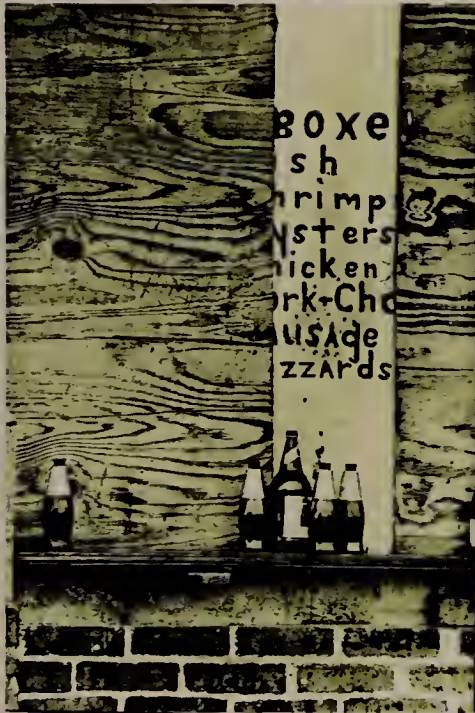 BOXe
sh
rimp
ysters
hicken
ork-Cho
ausage
zzards